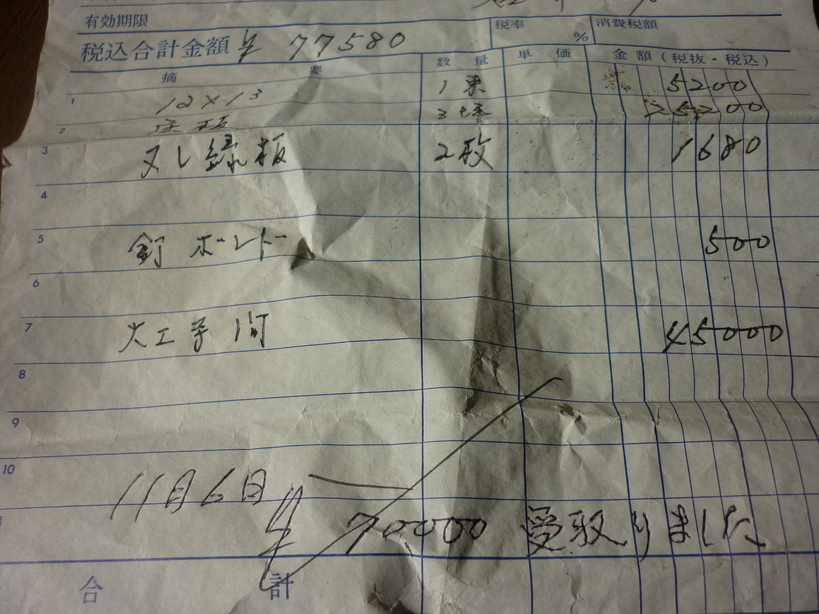 有効期限
税率 % 消費税額
税込合計金額 ¥ 77580
摘 要 数 量 単 価 金 額 (税抜・税込)
1 12×13 1束 5200
2 3坪 25200
3 ヌレ縁板 2枚 1680
4
5 釘 ボンド 500
6
7 大工手間 45000
8
9
10
11月6日
¥ 70000 受取りました
合 計